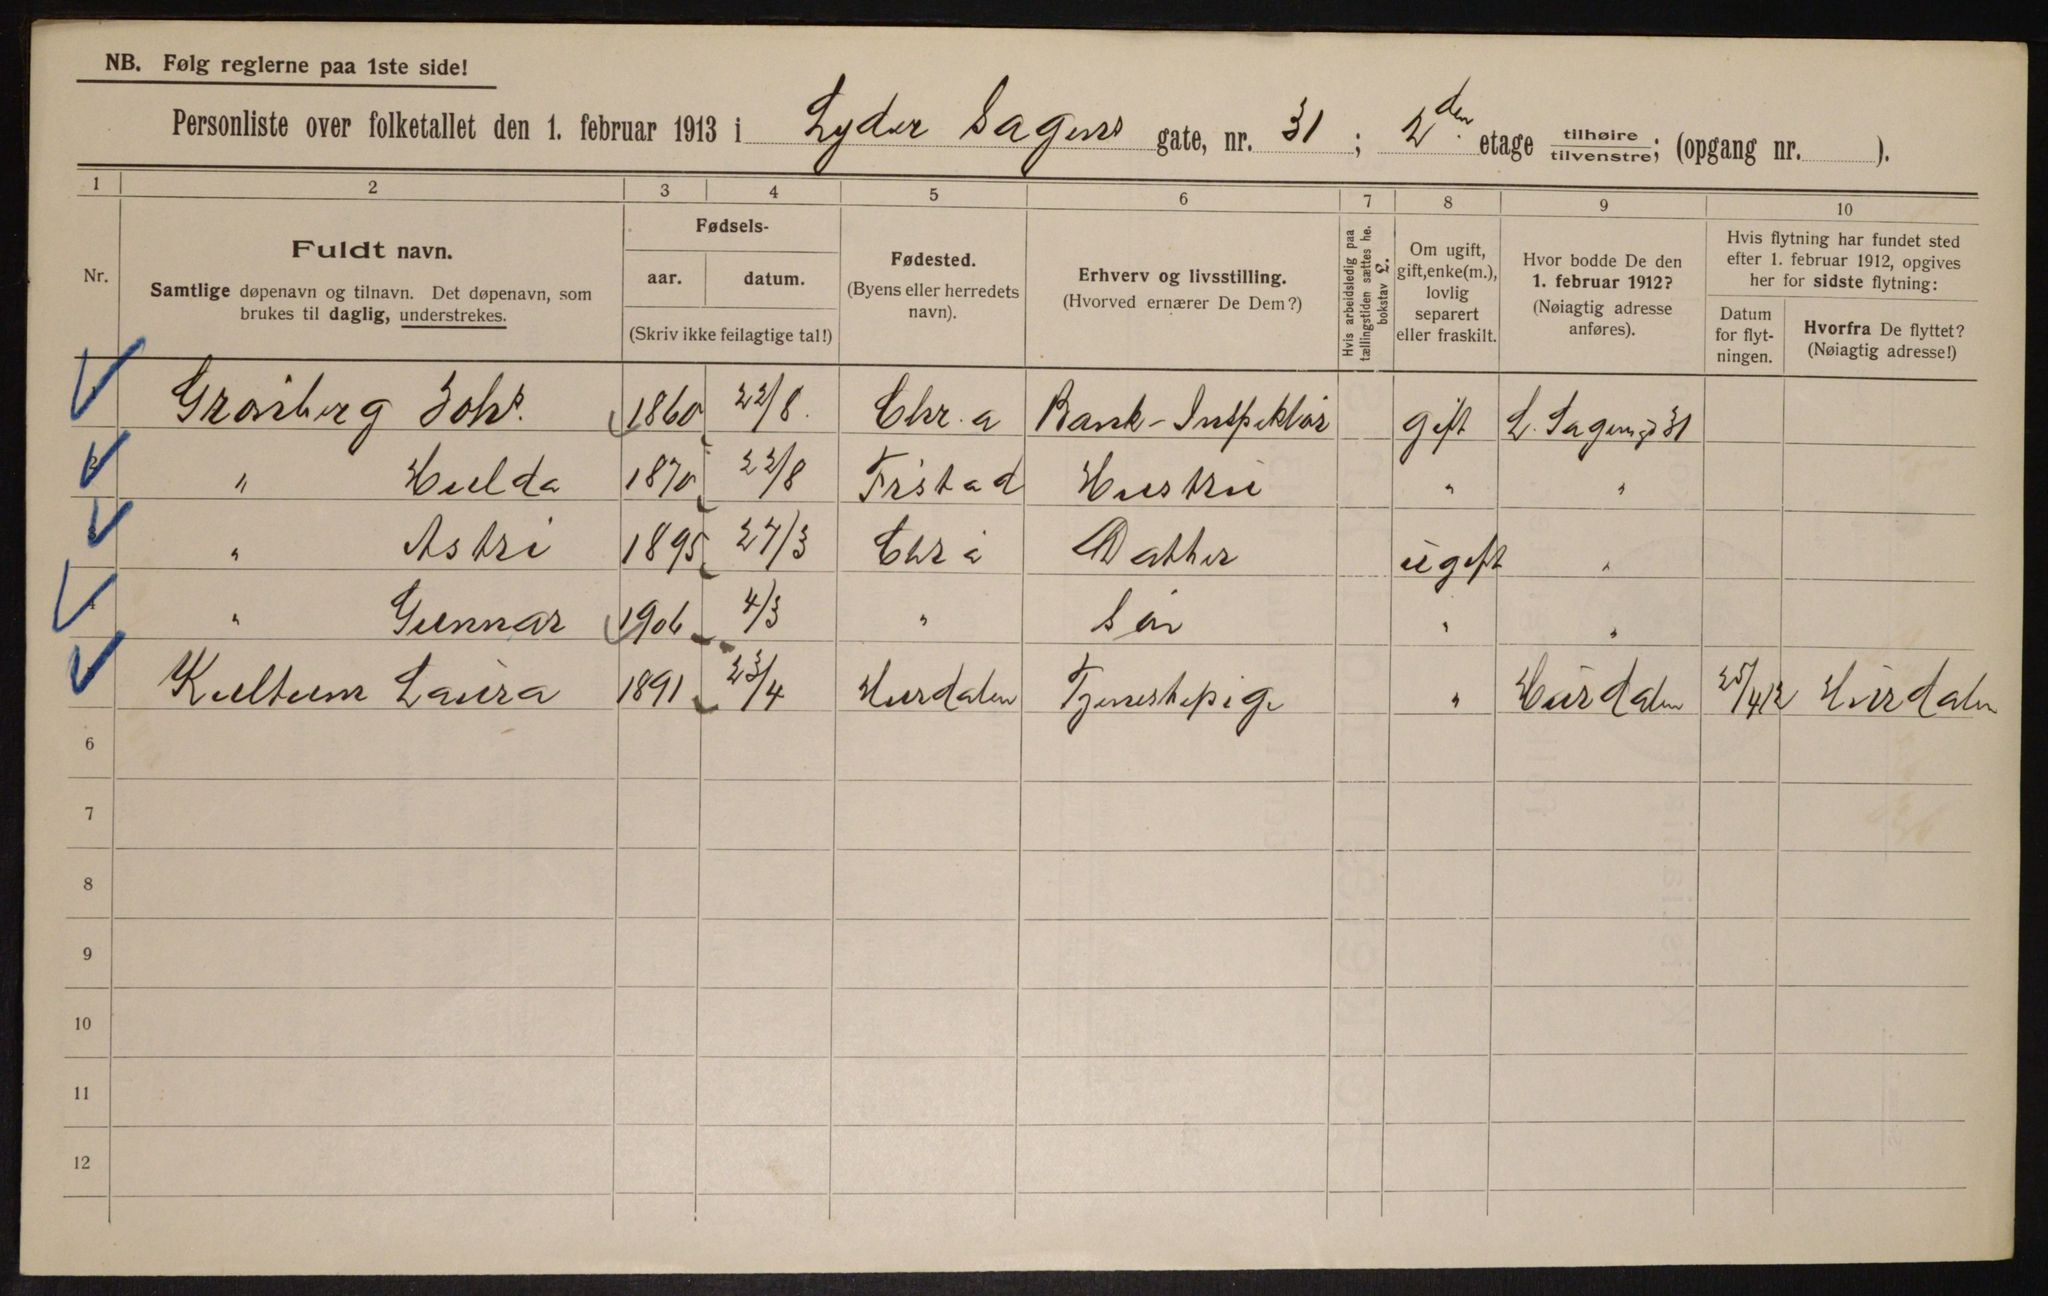 NB. Følg reglerne paa 1ste side!
Personliste over folketallet den 1. februar 1913 i Lyder Sagens gate, nr. 31 ; 2den etage tilhøire/tilvenstre; (opgang nr. ).
1 2 3 4 5 6 7 8 9 10
Nr.
Fuldt navn.
Samtlige døpenavn og tilnavn. Det døpenavn, som
brukes til daglig, understrekes.
Fødsels-
aar. datum.
(Skriv ikke feilagtige tal!)
Fødested.
(Byens eller herredets
navn).
Erhverv og livsstilling.
(Hvorved ernærer De Dem?)
Hvis arbeidsledig paa
tællingstiden sættes he.
bokstav £.
Om ugift,
gift, enke(m.),
lovlig
separert
eller fraskilt.
Hvor bodde De den
1. februar 1912?
(Nøiagtig adresse
anføres).
Hvis flytning har fundet sted
efter 1. februar 1912, opgives
her for sidste flytning:
Datum
for flyt-
ningen.
Hvorfra De flyttet?
(Nøiagtig adresse!)
Grønberg Johs. 1860 22/8. Chr.a Bank-Inspektør gift L. Sagensg 31
2 " Hulda 1870 22/8 Hustru " "
3 " Astri 1895 27/3 Chr a Datter ugift "
4 " Gunnar 1906 4/3 " Søn " "
Kultum Laura 1891 23/4 Hurdalen Tjenestepige " Hurdalen 25/4 12 Hurdalen
6
7
8
9
10
11
12